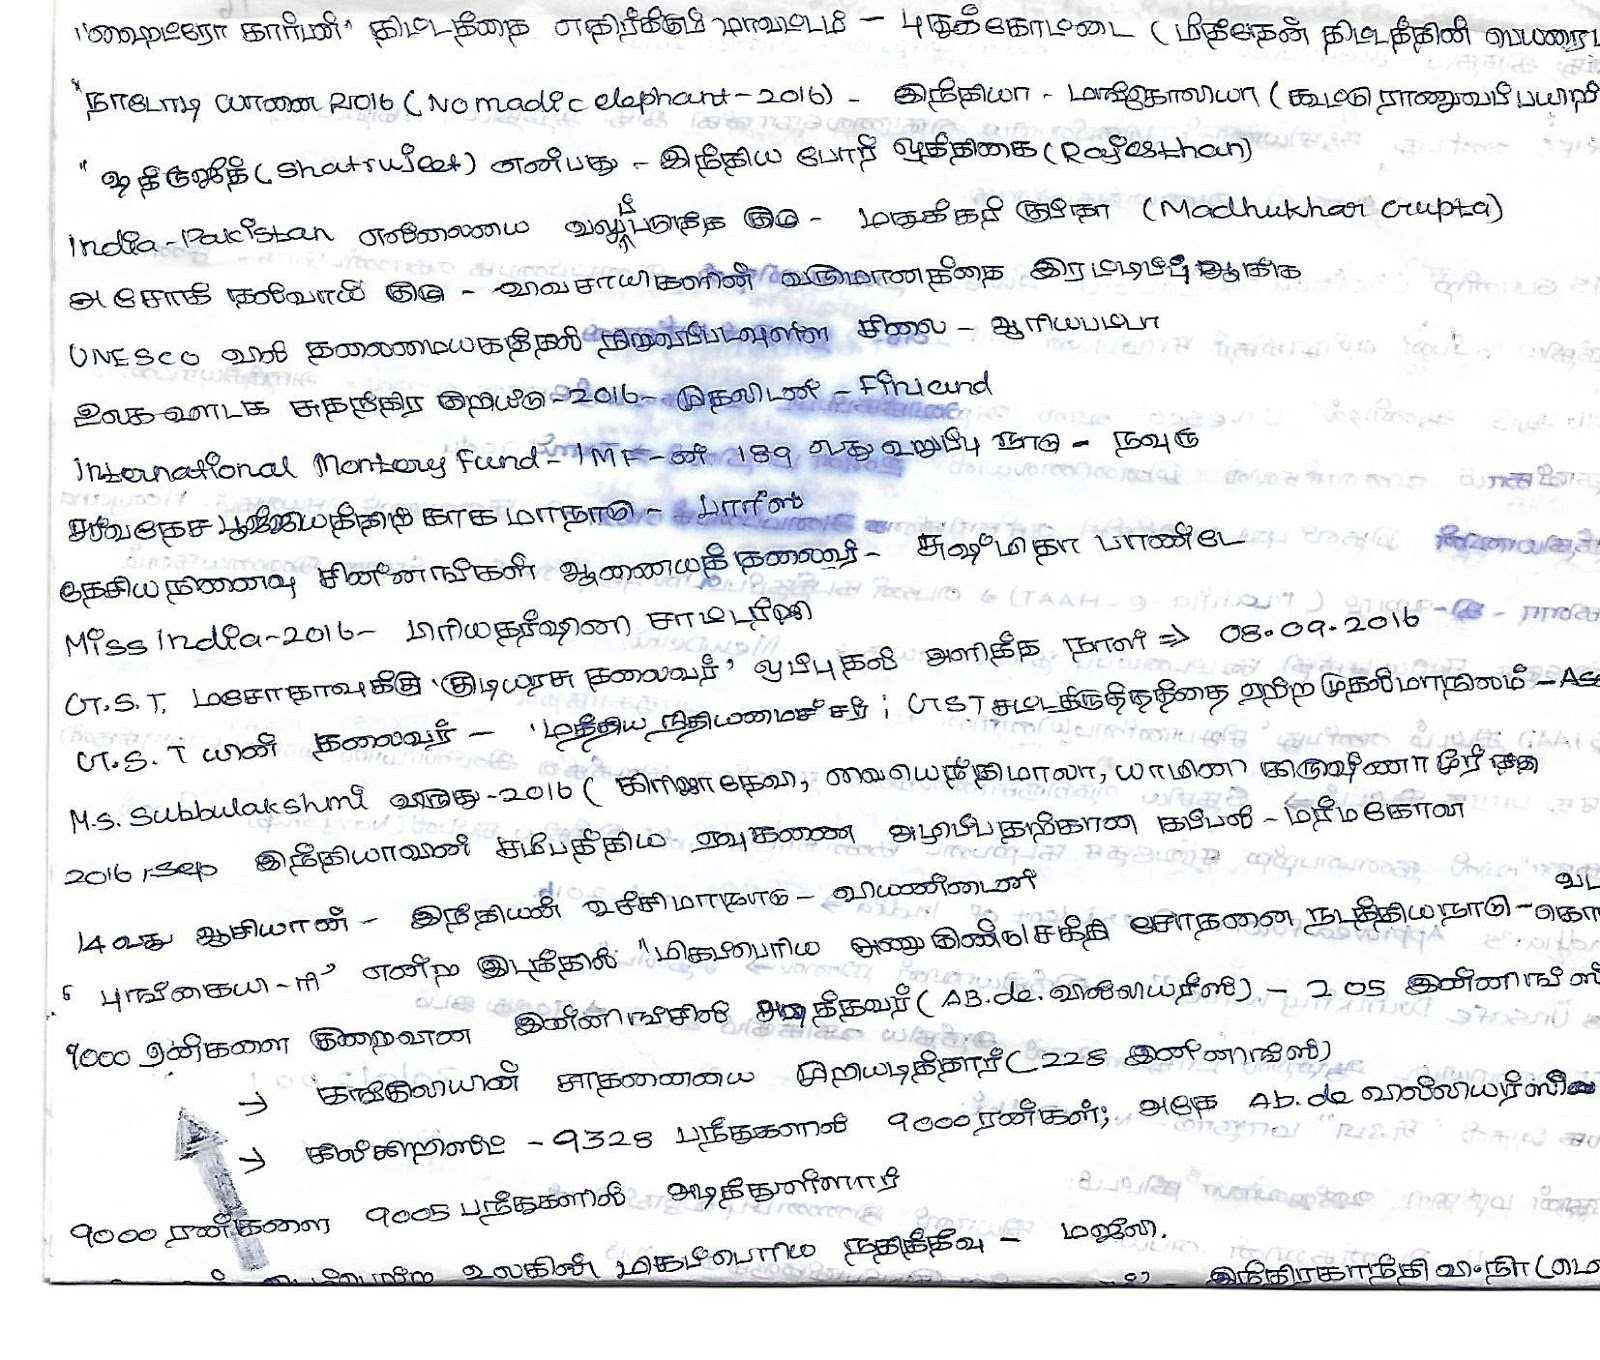 'ஹைட்ரோ கார்பன்' திட்டத்தை எதிர்க்கும் மாவட்டம் - புதுக்கோட்டை (மீத்தேன் திட்டத்தின் பெயரை
"நாடோடி யானை 2016 (Nomadic elephant-2016) - இந்தியா - மங்கோலியா (கூட்டு ராணுவப் பயிற்சி
"ஷத்ருஜீத் (Shatrujeet) என்பது - இந்திய போர் ஒத்திகை (Rajesthan)
India-Pakistan எல்லையை வலுப்படுத்த குழு - மதுக்கர் குப்தா (Madhukhar Gupta)
அசோக் தல்வாய் குழு - விவசாயிகளின் வருமானத்தை இரட்டிப்பு ஆக்க
UNESCO வின் தலைமையகத்தில் நிறுவப்படவுள்ள சிலை - ஆரியபட்டா
உலக ஊடக சுதந்திர குறியீடு-2016- முதலிடம் - Finland
International Montery Fund - IMF-ன் 189 வது உறுப்பு நாடு - நவுரு
சர்வதேச பூஜ்ஜியத்திற்காக மாநாடு - பாரீஸ்
தேசிய நினைவு சின்னங்கள் ஆணையத் தலைவர் - சுஷ்மிதா பாண்டே
Miss India-2016- பிரியதர்ஷினி சாட்டர்ஜி
G.S.T. மசோதாவுக்கு 'குடியரசு தலைவர்' ஒப்புதல் அளித்த நாள் => 08.09.2016
G.S.T யின் தலைவர் - 'மத்திய நிதியமைச்சர்; GST சட்டத்திருத்தத்தை ஏற்ற முதல் மாநிலம் - Ass
M.S. Subbulakshmi விருது-2016 (கிரிஜாதேவி, வையெந்திமாலா, யாமினி கிருஷ்ணா மூர்த்தி
2016, Sep இந்தியாவின் சமீபத்திய ஏவுகணை அழிப்பதற்கான கப்பல் - மர்மகோவா
14 வது ஆசியான் - இந்தியன் உச்சிமாநாடு - வியண்டைன்
'புங்கையி-ரி' என்ற இடத்தில் "மிகப்பெரிய அணுகுண்டு சக்தி சோதனை நடத்திய நாடு - வட கொ
9000 ரன்களை குறைவான இன்னிங்சில் அடித்தவர் (AB.de.வில்லியர்ஸ்) - 205 இன்னிங்ஸ்
→ கங்குலியின் சாதனையை முறியடித்தார் (228 இன்னிங்ஸ்)
→ கில்கிறிஸ்ட் - 9328 பந்துகளால் 9000 ரன்கள்; அதே Ab.de வில்லியர்ஸ்
9000 ரன்களை 9005 பந்துகளால் அடித்துள்ளார்
உலகின் மிகப்பெரிய நதித்தீவு - மஜூலி.
இந்திரகாந்தி